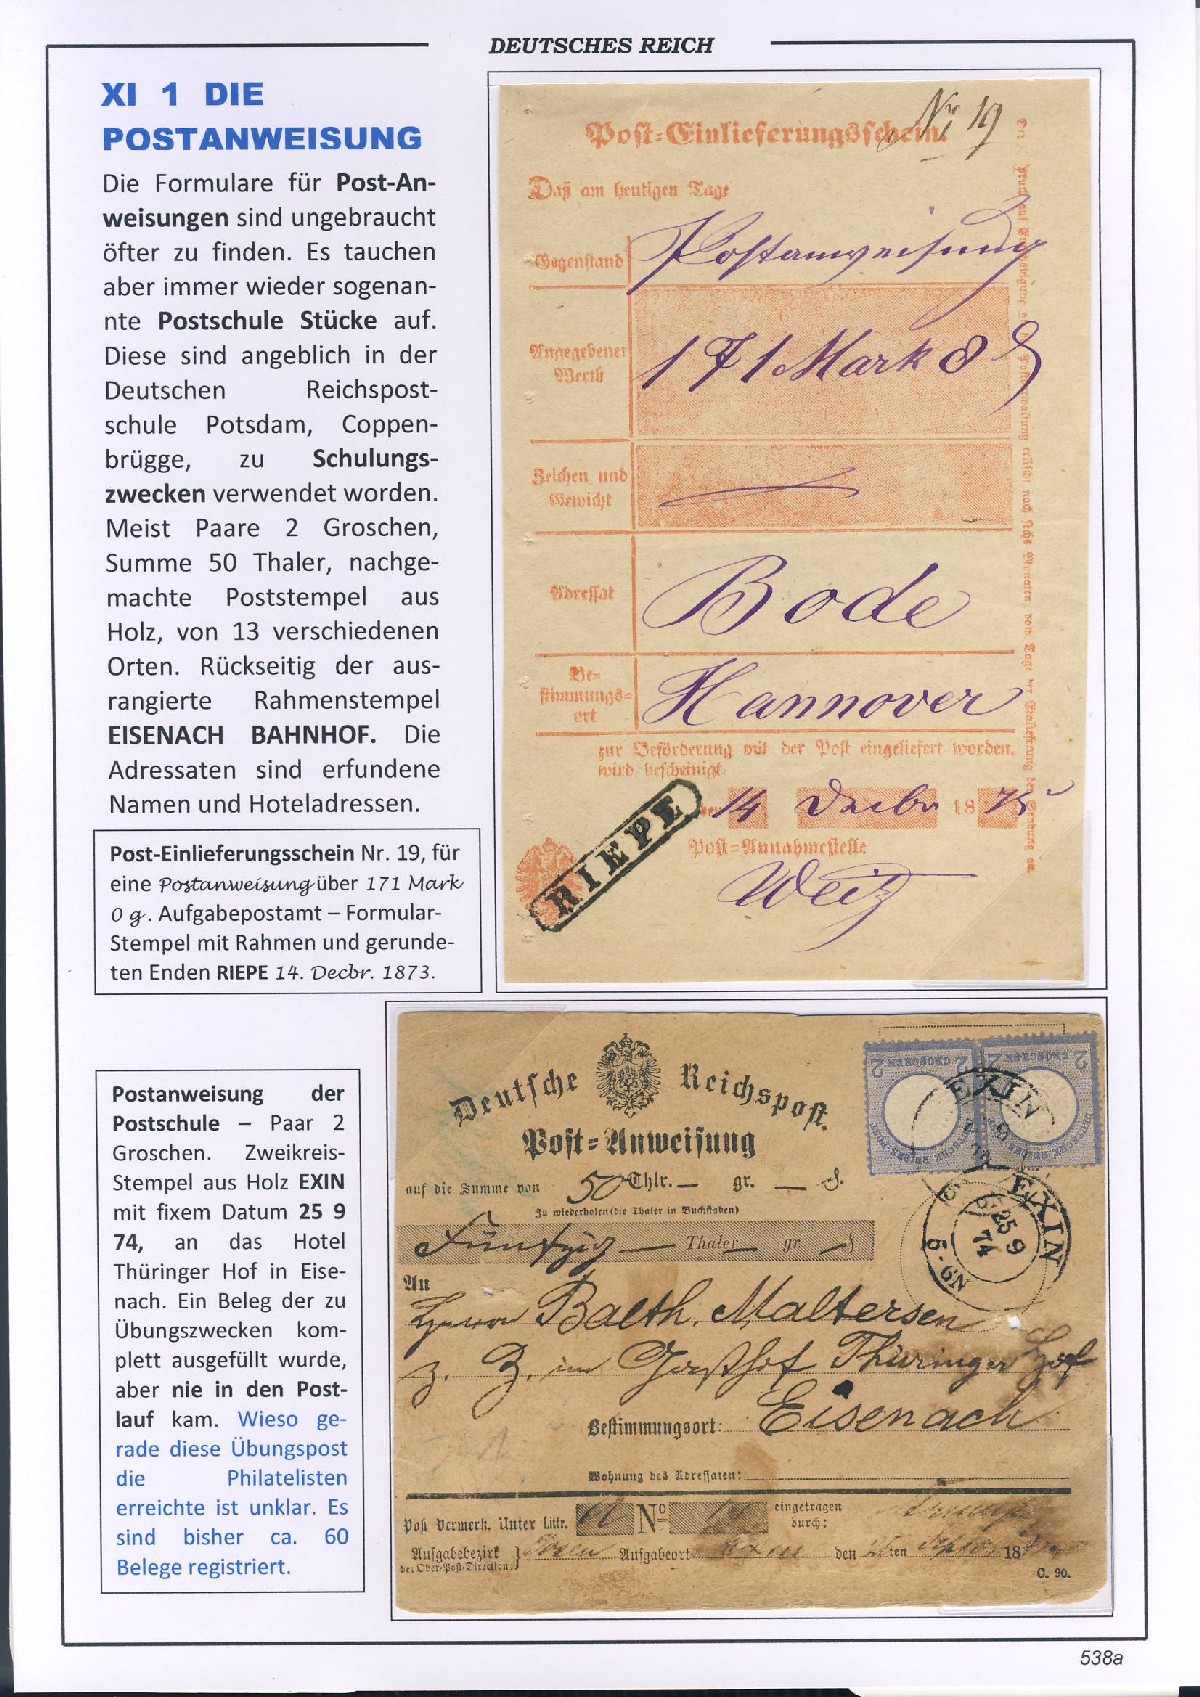 DEUTSCHES REICH
XI 1 DIE
POSTANWEISUNG
Die Formulare für Post-An-
weisungen sind ungebraucht
öfter zu finden. Es tauchen
aber immer wieder sogenan-
nte Postschule Stücke auf.
Diese sind angeblich in der
Deutschen Reichspost-
schule Potsdam, Coppen-
brügge, zu Schulungs-
zwecken verwendet worden.
Meist Paare 2 Groschen,
Summe 50 Thaler, nachge-
machte Poststempel aus
Holz, von 13 verschiedenen
Orten. Rückseitig der aus-
rangierte Rahmenstempel
EISENACH BAHNHOF. Die
Adressaten sind erfundene
Namen und Hoteladressen.
Post-Einlieferungsschein Nr. 19, für
eine Postanweisung über 171 Mark
0 g. Aufgabepostamt – Formular-
Stempel mit Rahmen und gerunde-
ten Enden RIEPE 14. Decbr. 1873.
№ 19
Post-Einlieferungsschein
Daß am heutigen Tage
Gegenstand Postanweisung
Angegebener
Werth
171 Mark 8
Zeichen und
Gewicht
Adressat Bode
Be-
stimmungs-
ort
Hannover
zur Beförderung mit der Post eingeliefert worden,
wird bescheinigt.
14 Decbr 1875
Post-Annahmestelle
RIEPE
Postanweisung der
Postschule – Paar 2
Groschen. Zweikreis-
Stempel aus Holz EXIN
mit fixem Datum 25 9
74, an das Hotel
Thüringer Hof in Eise-
nach. Ein Beleg der zu
Übungszwecken kom-
plett ausgefüllt wurde,
aber nie in den Post-
lauf kam. Wieso ge-
rade diese Übungspost
die Philatelisten
erreichte ist unklar. Es
sind bisher ca. 60
Belege registriert.
Deutsche Reichspost.
Post-Anweisung
auf die Summe von 50 Thlr. — gr. —
Zu wiederholen (die Thaler in Buchstaben)
Fünfzig — Thaler — gr
An
Herrn Balth. Maltersen
z. Z. im Gasthof Thüringer Hof
Bestimmungsort: Eisenach
Wohnung des Adressaten:
Post Vermerk. Unter Littr. No eingetragen
durch:
Aufgabebezirk
der Ober-Post-Direction
Aufgabeort Exin den ten 18
C. 90.
2 GROSCHEN 2
2 GROSCHEN 2
EXIN
EXIN
25 9
74
5-6N
538a